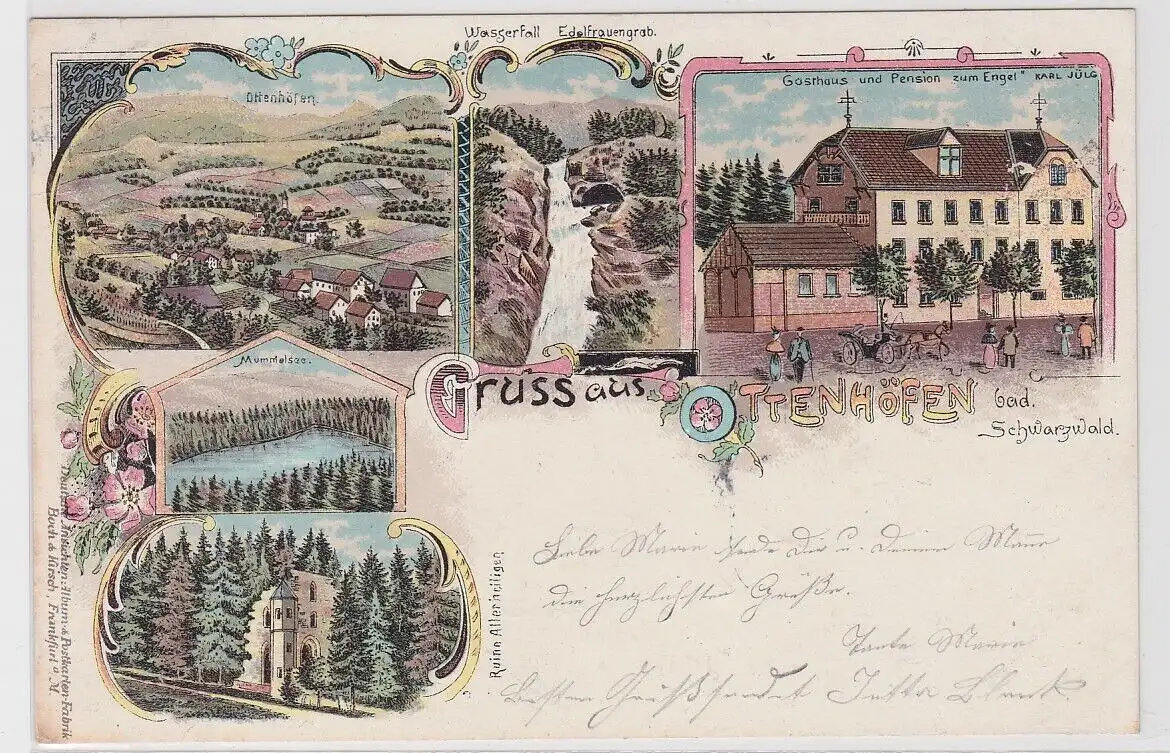 Wasserfall Edelfrauengrab.
Gasthaus und Pension zum Engel" KARL JÜLG
Ottenhöfen.
Mummelsee.
Gruss aus OTTENHÖFEN bad.
Schwarzwald.
Ruine Allerheiligen
Deutsche Ansichten-Album-& Postkarten-Fabrik
Boch & Kirsch, Frankfurt a/M.
Liebe Marie sende Dir u. Deinem Mann
die herzlichsten Grüße.
Tante Marie
Besten Gruß sendet Jutta